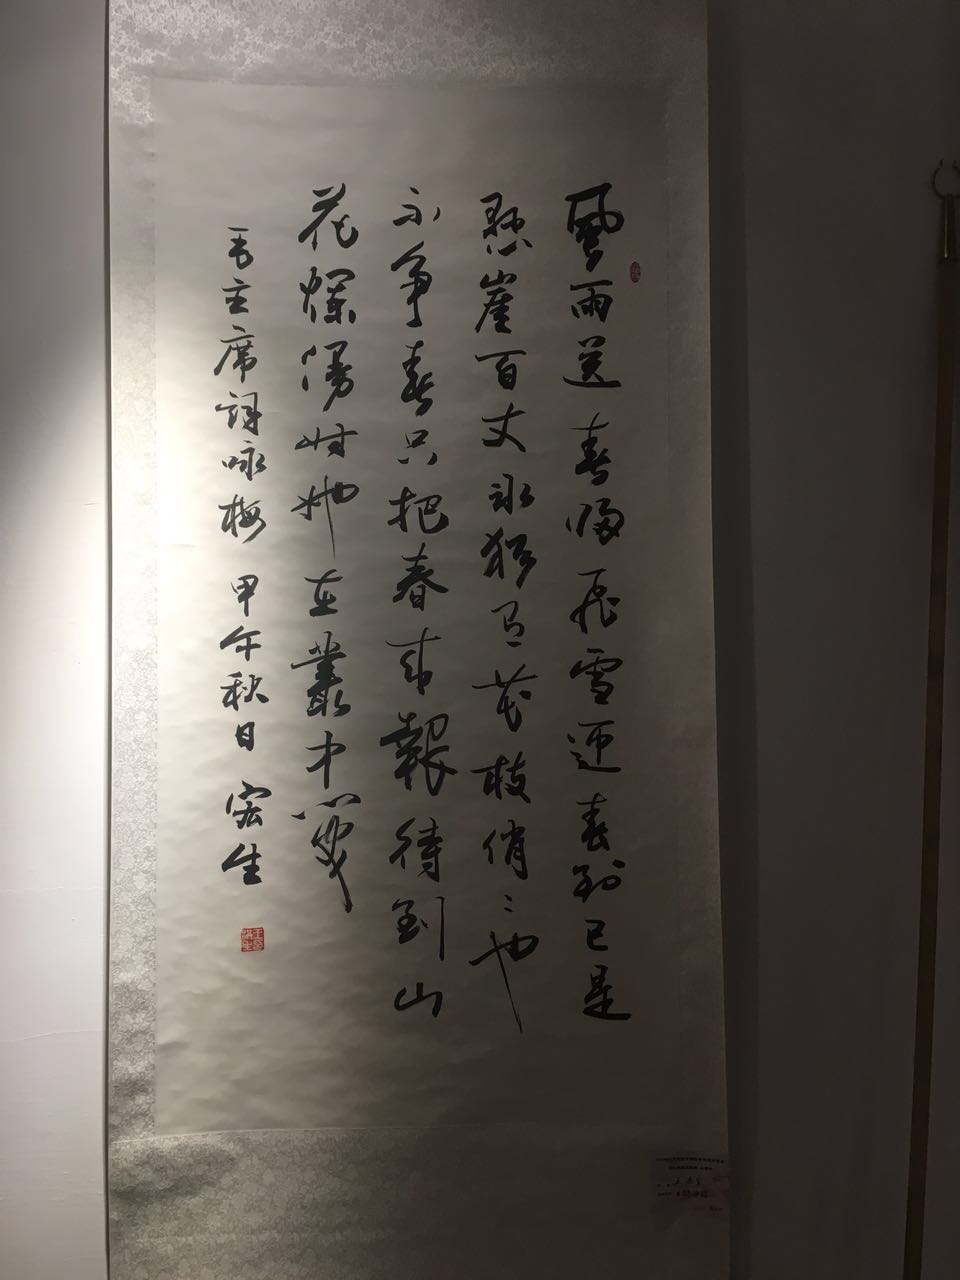 風雨送春歸飛雪迎春到已是
懸崖百丈冰猶有花枝俏〻也
不争春只把春來報待到山
花爛漫時她在叢中笑
毛主席詞咏梅 甲午秋日 宏生